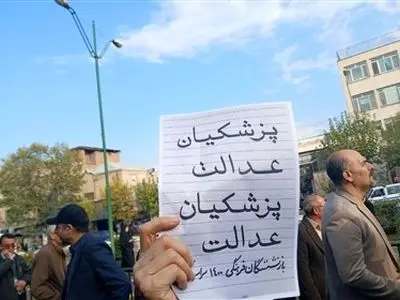 پزشکیان
عدالت
پزشکیان
عدالت
بازنشستگان فرهنگی ۱۴۰۰